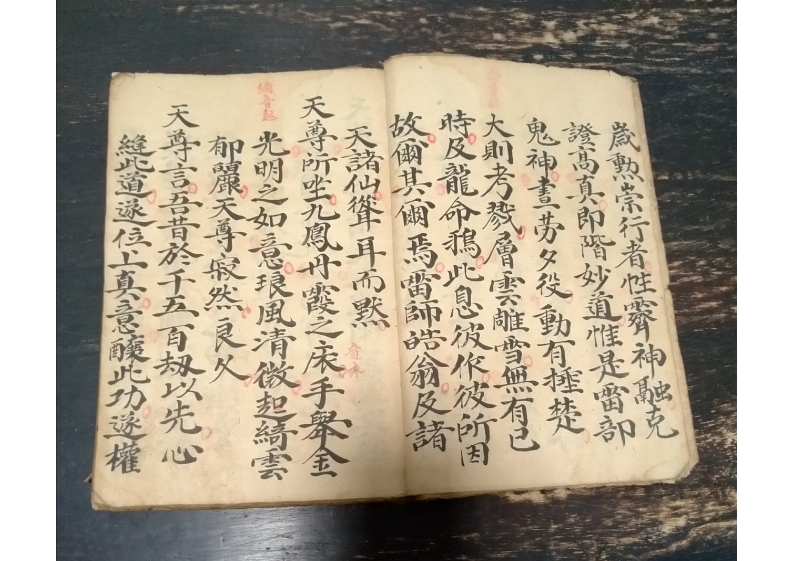 歲勲崇行者性霽神融克
證高真即階妙道惟是雷部
鬼神晝劳夕役動有捶楚
大則考戮層雲雕雪無有已
時及龍命鵶此息彼作彼所因
故爾其爾焉雷師皓翁及諸
天諸仙聳耳而默
天尊所坐九鳳丹霞之床手舉金
光明之如意琅風清微起綺雲
郁麗天尊寂然良久
天尊言吾昔於千五百刼以先心
縫此道遂位上真意釀此功遂權